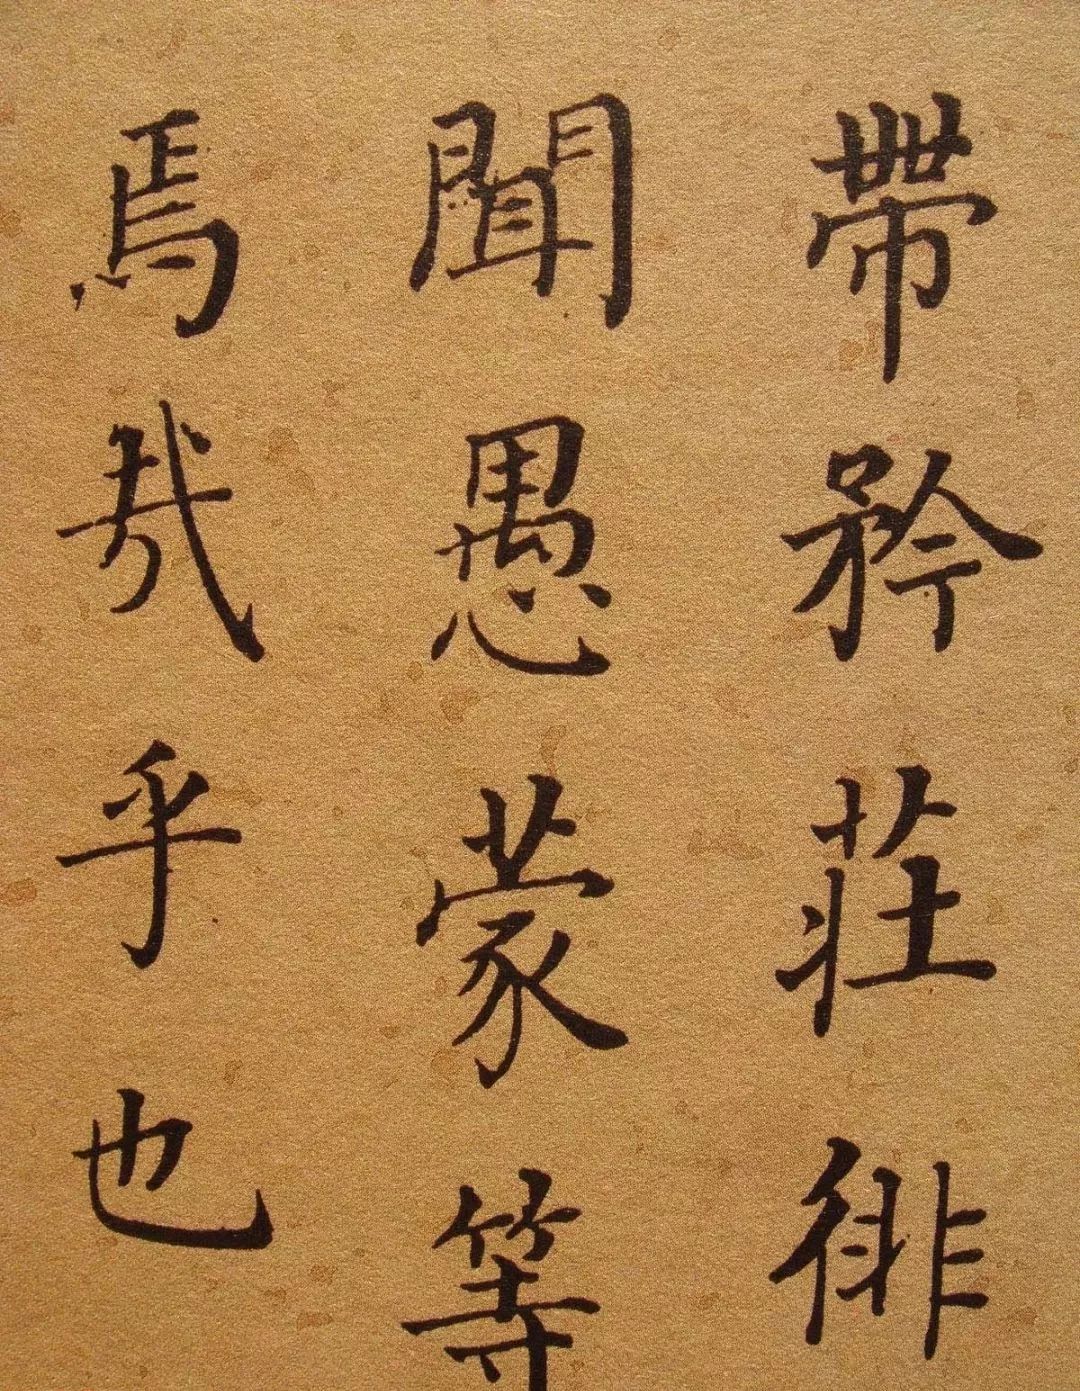 帶矜莊徘
聞愚蒙等
焉哉乎也